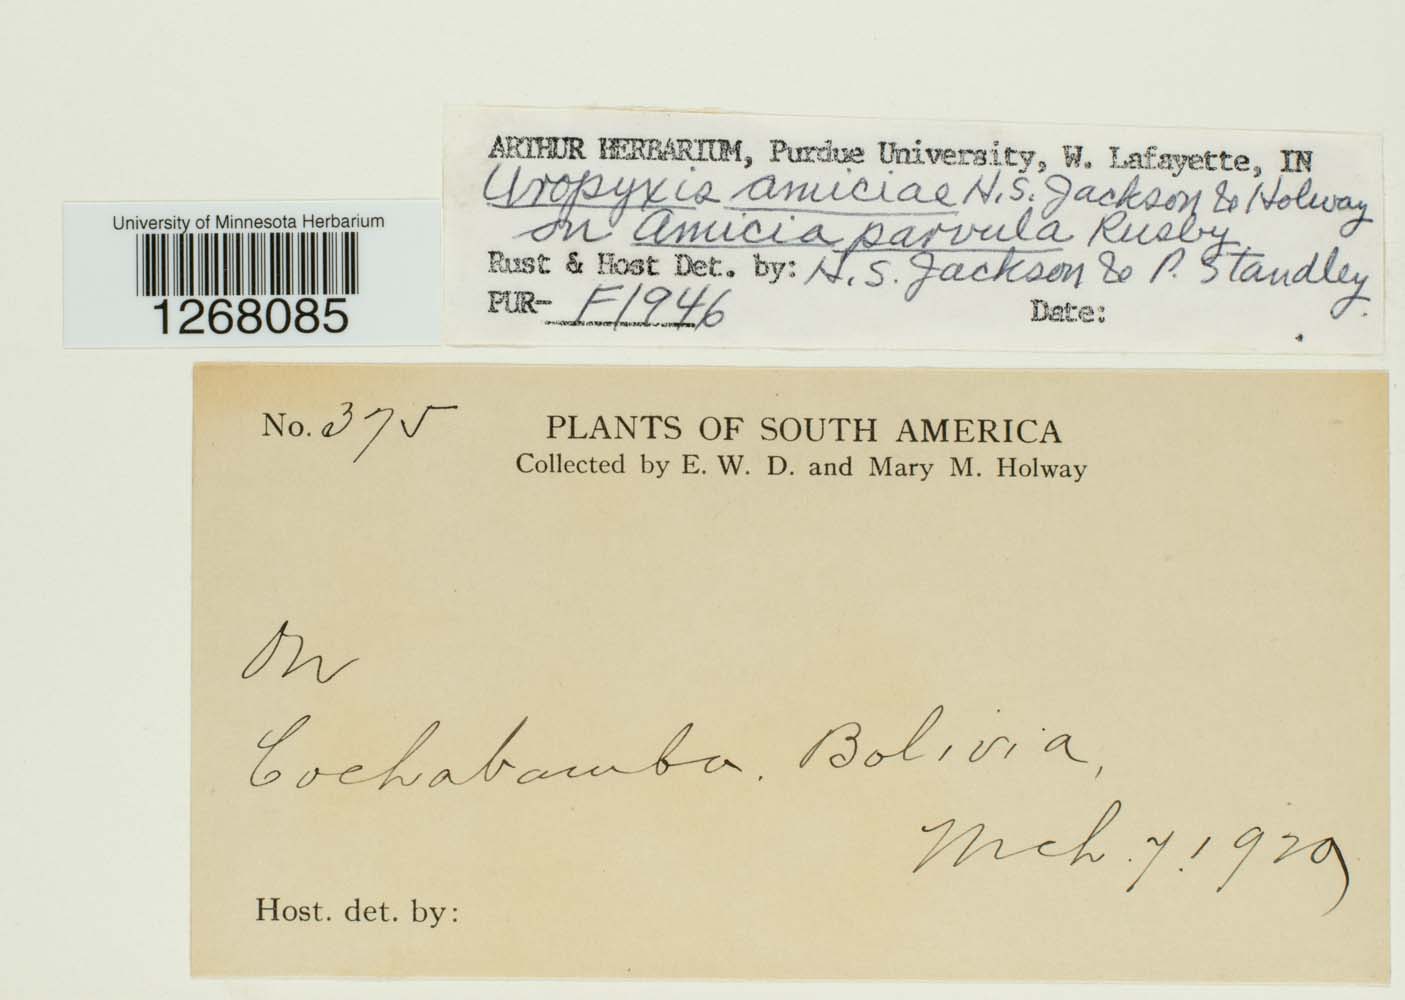 ARTHUR HERBARIUM, Purdue University, W. Lafayette, IN
Uropyxis amiciae H.S. Jackson & Holway
on Amicia parvula Rusby
Rust & Host Det. by: H.S. Jackson & P. Standley.
PUR- F1946 Date:
University of Minnesota Herbarium
1268085
No. 375
PLANTS OF SOUTH AMERICA
Collected by E. W. D. and Mary M. Holway
On
Cochabamba. Bolivia,
Mch. 7. 1920
Host. det. by: